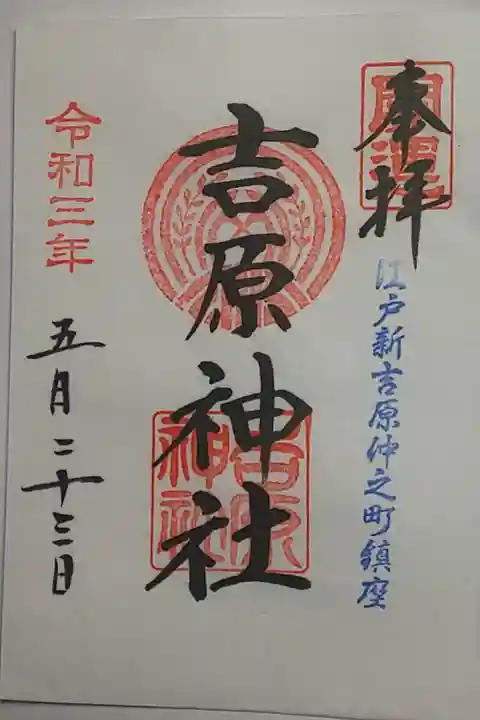 奉拝
江戸新吉原仲之町鎮座
吉原神社
吉原
神社
令和三年
五月二十三日